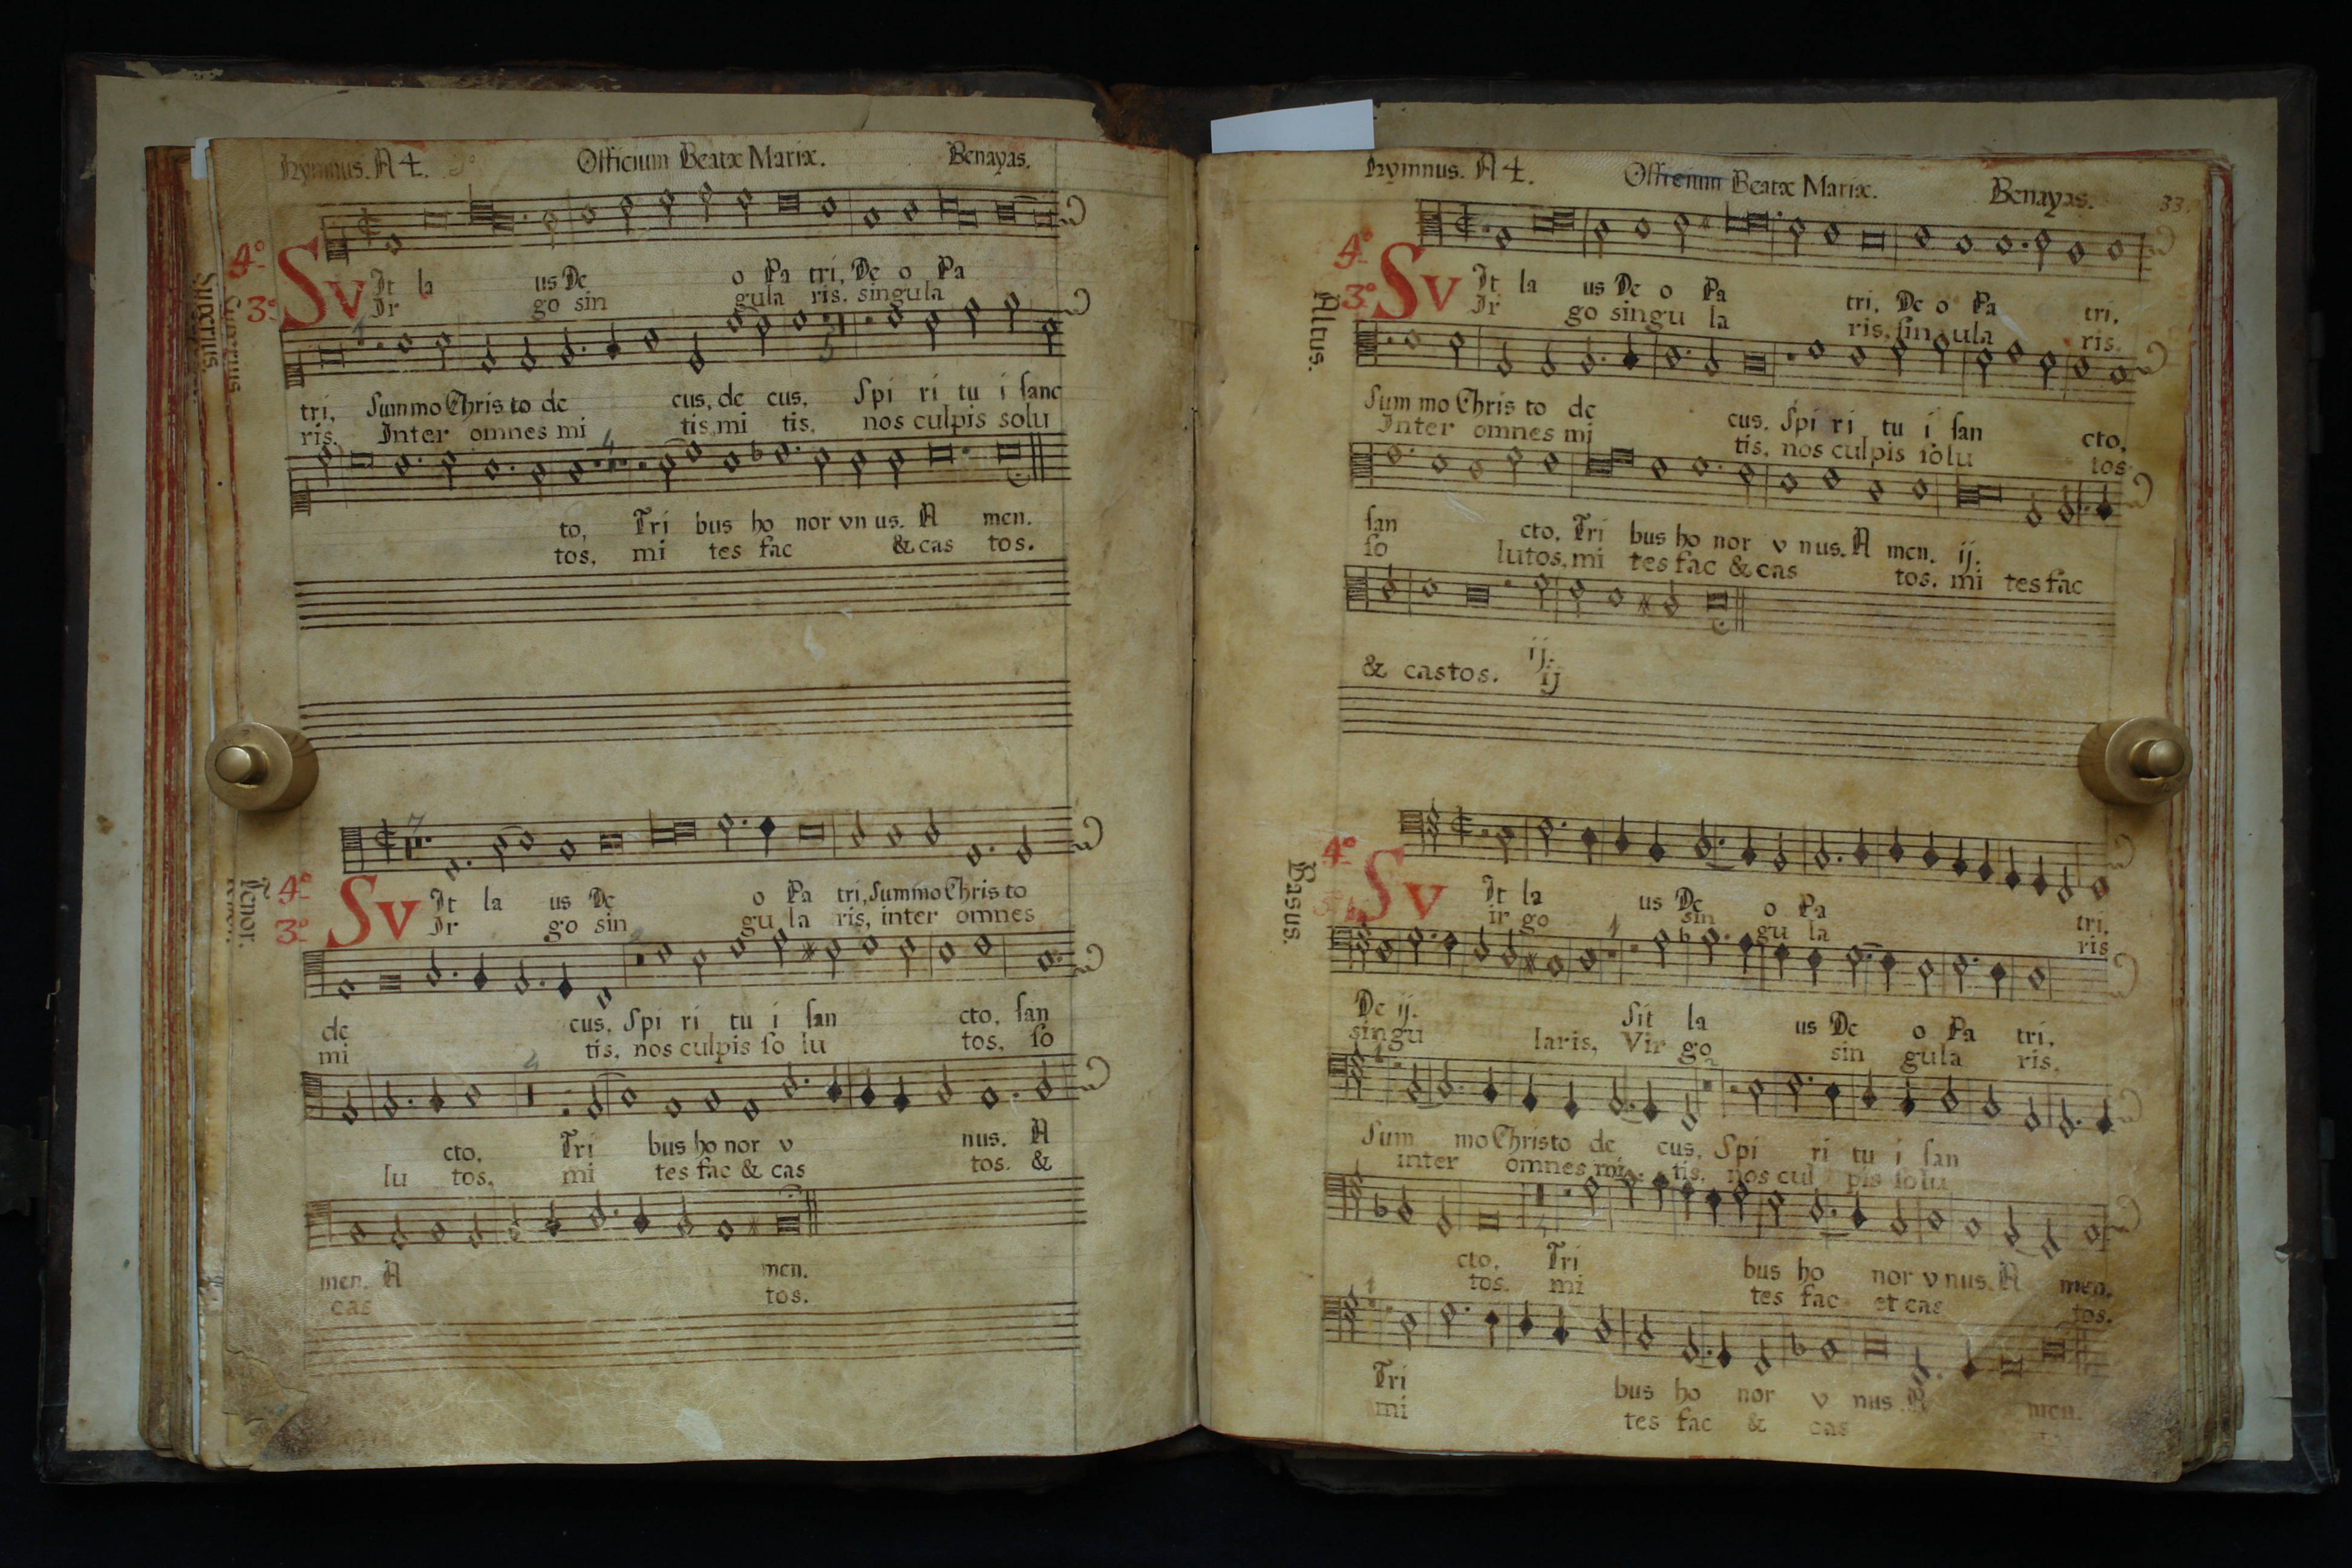 Hymnus. A 4. Officium Beatæ Mariæ. Benayas.
Supernus.
4º SIt la us De o Pa tri, De o Pa
3º VIr go sin gula ris, singula
tri, Summo Chris to de cus, de cus, Spi ri tu i sanc
ris. Inter omnes mi tis, mi tis, nos culpis solu
to, Tri bus ho nor vn us. A men.
tos, mi tes fac & cas tos.
Tenor.
4º SIt la us De o Pa tri, Summo Chris to
3º VIr go sin gu la ris, inter omnes
de cus, Spi ri tu i san cto, san
mi tis, nos culpis so lu tos, so
cto, Tri bus ho nor v nus. A
lu tos, mi tes fac & cas tos. &
men. A men.
cas tos.
Hymnus. A 4. Officium Beatæ Mariæ. Benayas. 33.
Altus.
4º SIt la us De o Pa tri, De o Pa tri,
3º VIr go singu la ris, singula ris.
Sum mo Chris to de cus, Spi ri tu i san cto,
Inter omnes mi tis, nos culpis solu tos
san cto, Tri bus ho nor v nus. A men. ij.
so lutos, mi tes fac & cas tos. mi tes fac
ij.
& castos. ij
Basus.
4º SIt la us De o Pa tri,
Vir go sin gu la ris
De ij. Sit la us De o Pa tri,
singu laris, Vir go sin gula ris,
Sum mo Christo de cus, Spi ri tu i san
inter omnes mi tis, nos cul pis solu
cto, Tri bus ho nor v nus. A men.
tos. mi tes fac et cas tos.
Tri bus ho nor v nus A men.
mi tes fac & cas